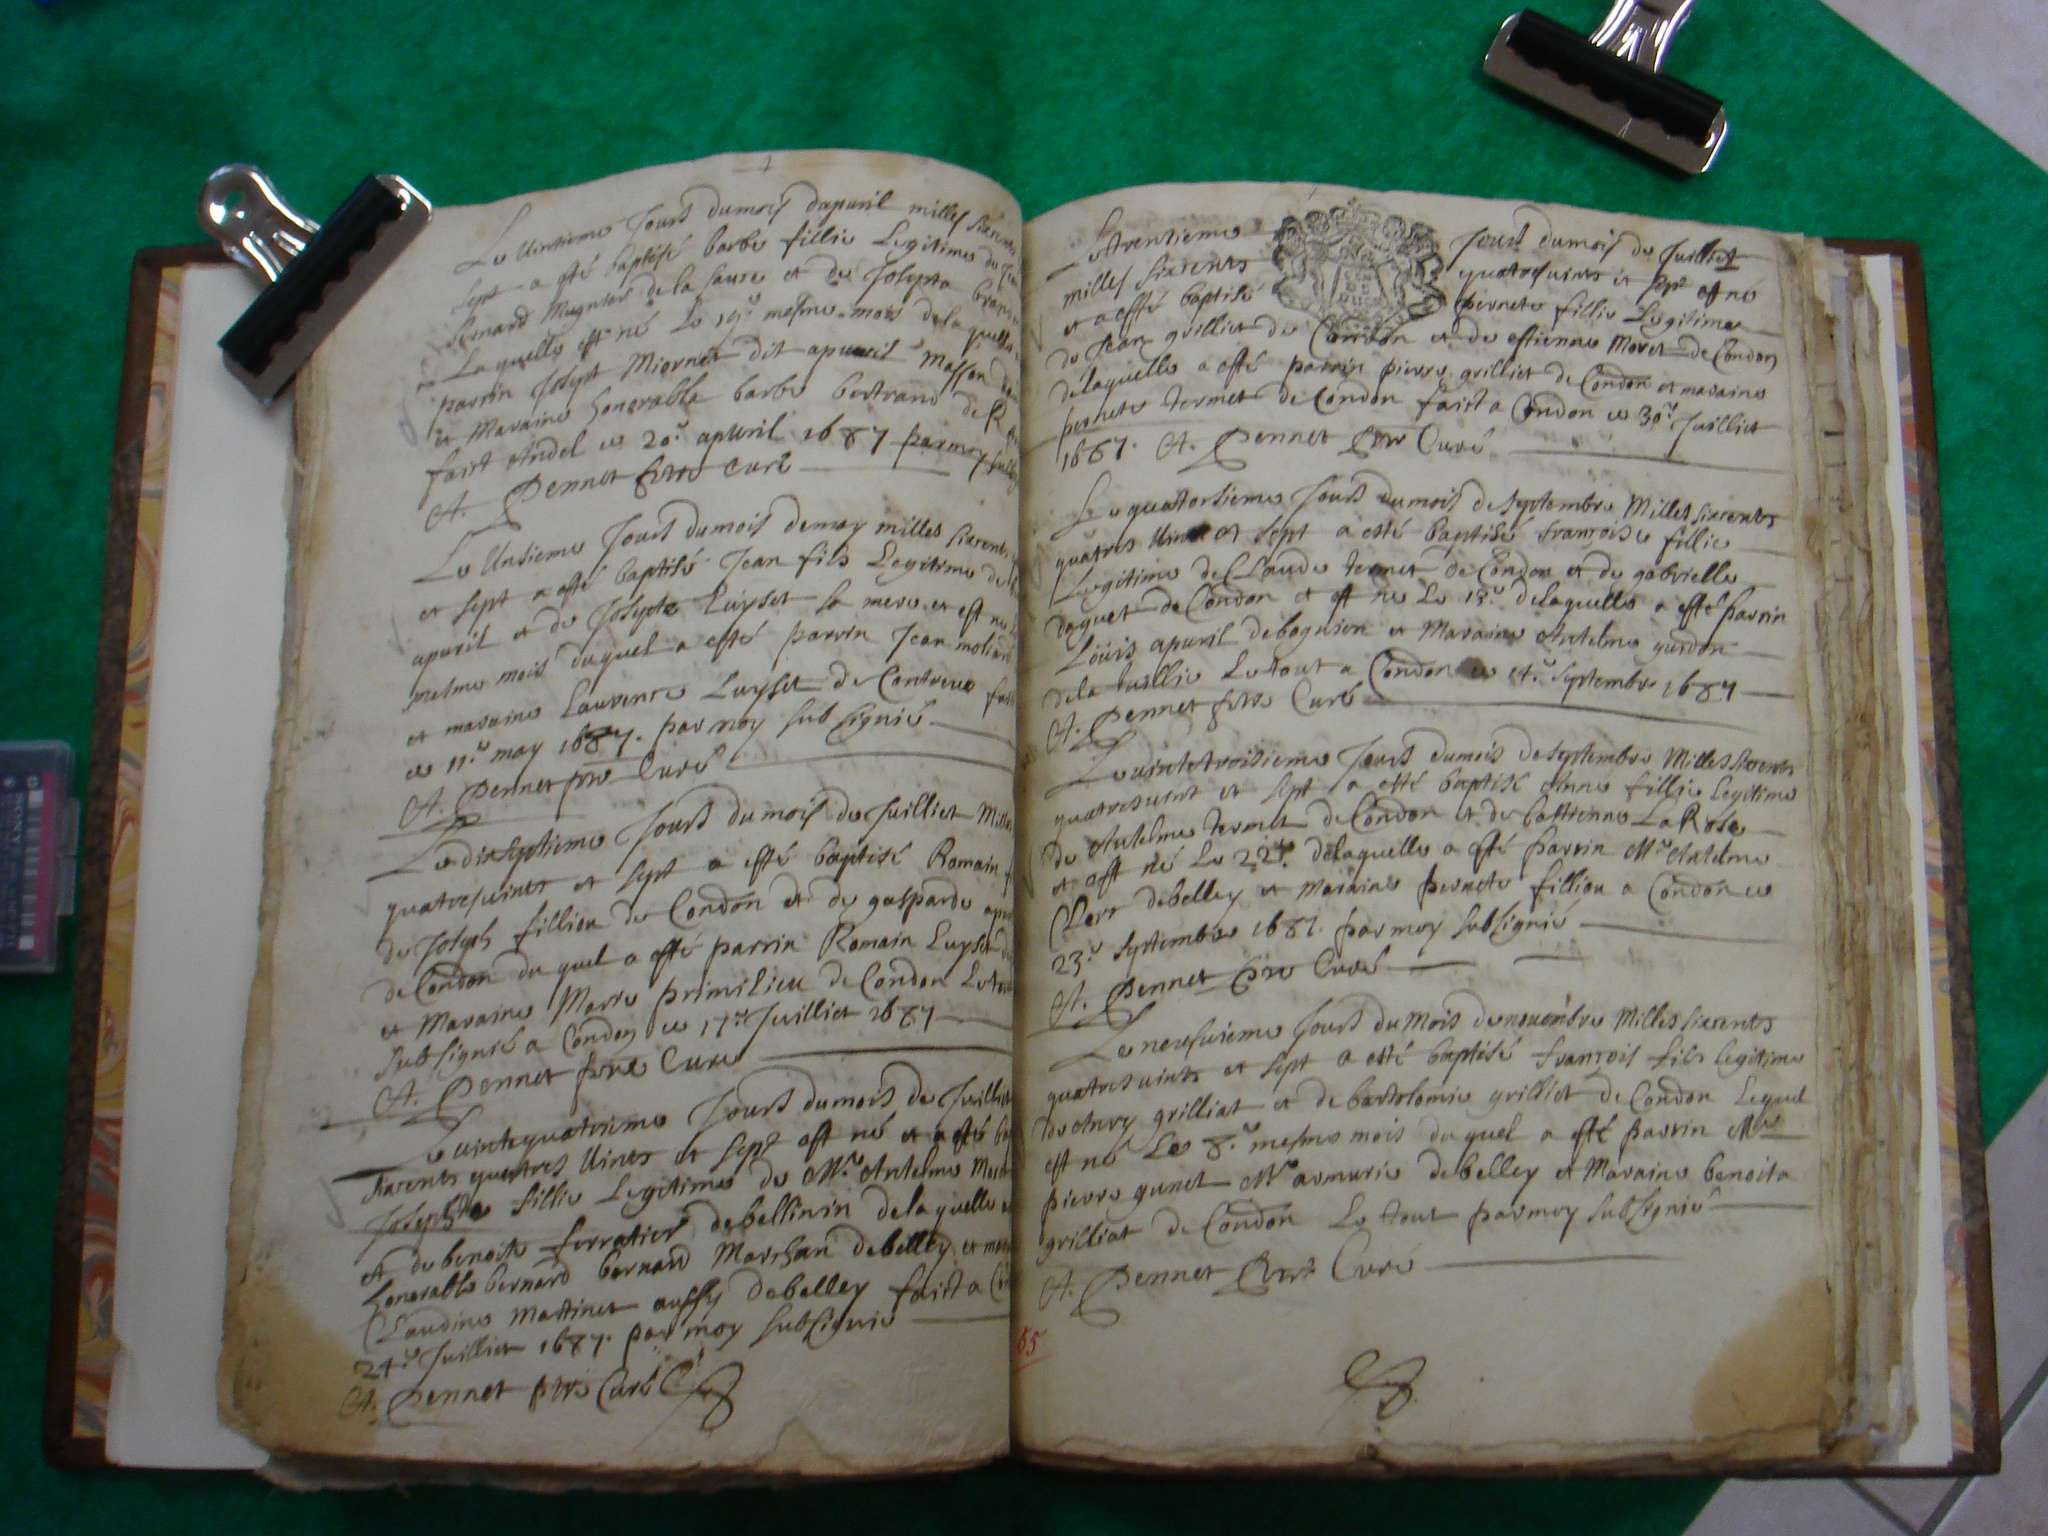 Le Uintieme Jourt du mois dapuril milles sixcents
sept a esté baptisé barbe fillie Legitime de
bernard Mugnier de la saure et de Josepta
La quelle est né Le 19.e mesme mois de laquelle
parrin Joseph Miornet dit apuril Masson
et Maraine honorable barbe bertrand de
faict Andel ce 20.e apuril 1687 par moy
A. Pennet ptre Curé
Le Unsieme Jourt du mois de may milles sixcents
et sept a esté baptisé Jean fils Legitime de
apuril et de Josepte Luyset sa mere et est né
mesme mois duquel a esté parrin Jean
et maraine Laurence Luyset de Contreue
ce 11.e may 1687. par moy subsignié
A. Pennet ptre Curé
Le dixseptieme Jourt du mois de Juilliet
quatresuints et sept a esté baptisé Romain
de Joseph fillion de Condon et de gasparde
de Condon du quel a esté parrin Romain Luyset
et Maraine Marie primilieu de Condon
subsignié a Condon ce 17.e Juilliet 1687
A. Pennet ptre Curé
Le uintequatrieme Jourt du mois de Juilliet
sixcents quatres Uints et sept est né et a esté
Josephte fillie Legitime de M.e Antelme
et de benoite ferratier de bellinin de laquelle
honorable bernard bernard Marchan de belley et
Claudine Martinet aussy de belley faict a
24.e Juilliet 1687. par moy subsignié
A. Pennet ptre Curé
Le trentieme Jourt du mois de Juilliet
milles sixcents quatresuints et sept est né
et a esté baptisé pernete fillie Legitime
de Jean grilliet de Condon et de estienne Moret de Condon
de laquelle a esté parrin pierre grilliet de Condon et maraine
pernete termet de Condon faict a Condon ce 30.e Juilliet
1687. A. Pennet ptre Curé
Le quatorsieme Jourt du mois de septembre Milles sixcents
quatres Uint et sept a esté baptisé françoise fillie
Legitime de Claude termet de Condon et de gabrielle
daguet de Condon et est né Le 13.e de laquelle a esté parrin
Louis apuril de bognien et Maraine Antelme gurdon
de la tuillie Le tout a Condon ce 14.e septembre 1687
A. Pennet ptre Curé
Le uintetroisieme Jourt du mois de septembre Milles sixcents
quatresuint et sept a esté baptisé Anne fillie legitime
de Antelme termet de Condon et de bastienne La Rose
et est né Le 22.e de laquelle a esté parrin M.e Antelme
Clerc de belley et Maraine pernete fillion a Condon ce
23.e septembre 1687. par moy subsignié
A. Pennet ptre Curé
Le neufuieme Jourt du Mois de nouembre Milles sixcents
quatresuints et sept a esté baptisé françois fils legitime
de Anry grilliat et de bartolomie grilliet de Condon Lequel
est né Le 8.e mesme mois duquel a esté parrin M.e
pierre gunet M.e armurie de belley et Maraine benoita
grilliat de Condon Le tout par moy subsignié
A. Pennet ptre Curé
55
SONY